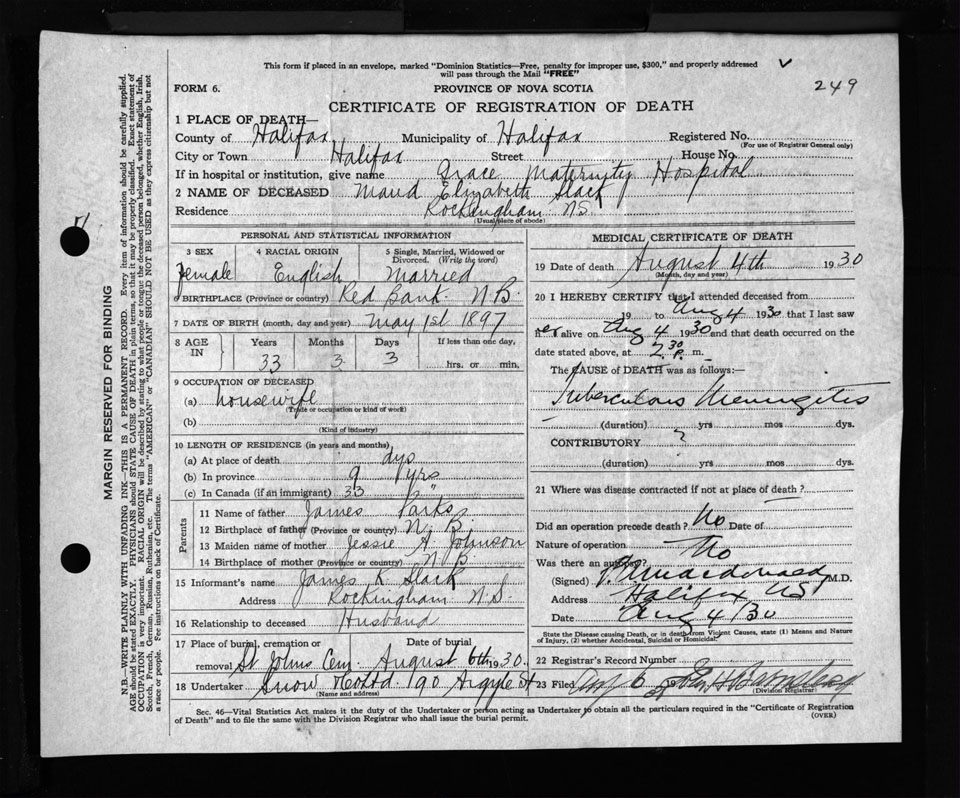 This form if placed in an envelope, marked "Dominion Statistics—Free, penalty for improper use, $300," and properly addressed
will pass through the Mail "FREE"
249
FORM 6.
PROVINCE OF NOVA SCOTIA
CERTIFICATE OF REGISTRATION OF DEATH
1 PLACE OF DEATH—
County of Halifax Municipality of Halifax Registered No.
(For use of Registrar General only)
City or Town Halifax Street House No.
If in hospital or institution, give name Grace Maternity Hospital
2 NAME OF DECEASED Maud Elizabeth Slack
Residence Rockingham N.S.
(Usual place of abode)
PERSONAL AND STATISTICAL INFORMATION
3 SEX 4 RACIAL ORIGIN 5 Single, Married, Widowed or Divorced. (Write the word)
Female English Married
6 BIRTHPLACE (Province or country) Red Bank N.B.
7 DATE OF BIRTH (month, day and year) May 1st 1897
8 AGE IN Years Months Days If less than one day,
33 3 3 hrs. or min.
9 OCCUPATION OF DECEASED
(a) housewife
(Trade or occupation or kind of work)
(b)
(Kind of industry)
10 LENGTH OF RESIDENCE (in years and months),
(a) At place of death dys
(b) In province 9 yrs
(c) In Canada (if an immigrant) 33 "
Parents
11 Name of father James Parks
12 Birthplace of father (Province or country) N. B.
13 Maiden name of mother Jessie A. Johnson
14 Birthplace of mother (Province or country) N B.
15 Informant's name James K. Slack
Address Rockingham N.S.
16 Relationship to deceased Husband
17 Place of burial, cremation or removal Date of burial
St Johns Cem. August 6th 1930.
18 Undertaker Snow & Co Ltd. 90 Argyle St
(Name and address)
MEDICAL CERTIFICATE OF DEATH
19 Date of death August 4th 1930
(Month, day and year)
20 I HEREBY CERTIFY that I attended deceased from
19 to Aug 4 1930 that I last saw
h er alive on Aug 4 1930 and that death occurred on the
date stated above, at 2.30 P. m.
The CAUSE of DEATH was as follows:—
Tuberculous Meningitis
(duration) ? yrs mos dys.
CONTRIBUTORY
(duration) yrs mos dys.
21 Where was disease contracted if not at place of death? —
Did an operation precede death? No Date of
Nature of operation
Was there an autopsy? No
(Signed) Macdonald M.D.
Address Halifax NS
Date Aug 4/30
State the Disease causing Death, or in death from Violent Causes, state (1) Means and Nature
of Injury, (2) whether Accidental, Suicidal or Homicidal.
22 Registrar's Record Number
23 Filed Aug 6
(Division Registrar)
Sec. 46—Vital Statistics Act makes it the duty of the Undertaker or person acting as Undertaker to obtain all the particulars required in the "Certificate of Registration
of Death" and to file the same with the Division Registrar who shall issue the burial permit.
(OVER)
MARGIN RESERVED FOR BINDING
N.B.—WRITE PLAINLY WITH UNFADING INK—THIS IS A PERMANENT RECORD. Every item of information should be carefully supplied.
AGE should be stated EXACTLY. PHYSICIANS should STATE CAUSE OF DEATH in plain terms, so that it may be properly classified. Exact statement of
OCCUPATION is very important. RACIAL ORIGIN will be described by stating to what people or tongue the deceased person belonged, whether English, Irish,
Scotch, French, German, Russian, Ruthenian, etc. The terms "AMERICAN" or "CANADIAN" SHOULD NOT BE USED as they express citizenship but not
a race or people. See instructions on back of Certificate.